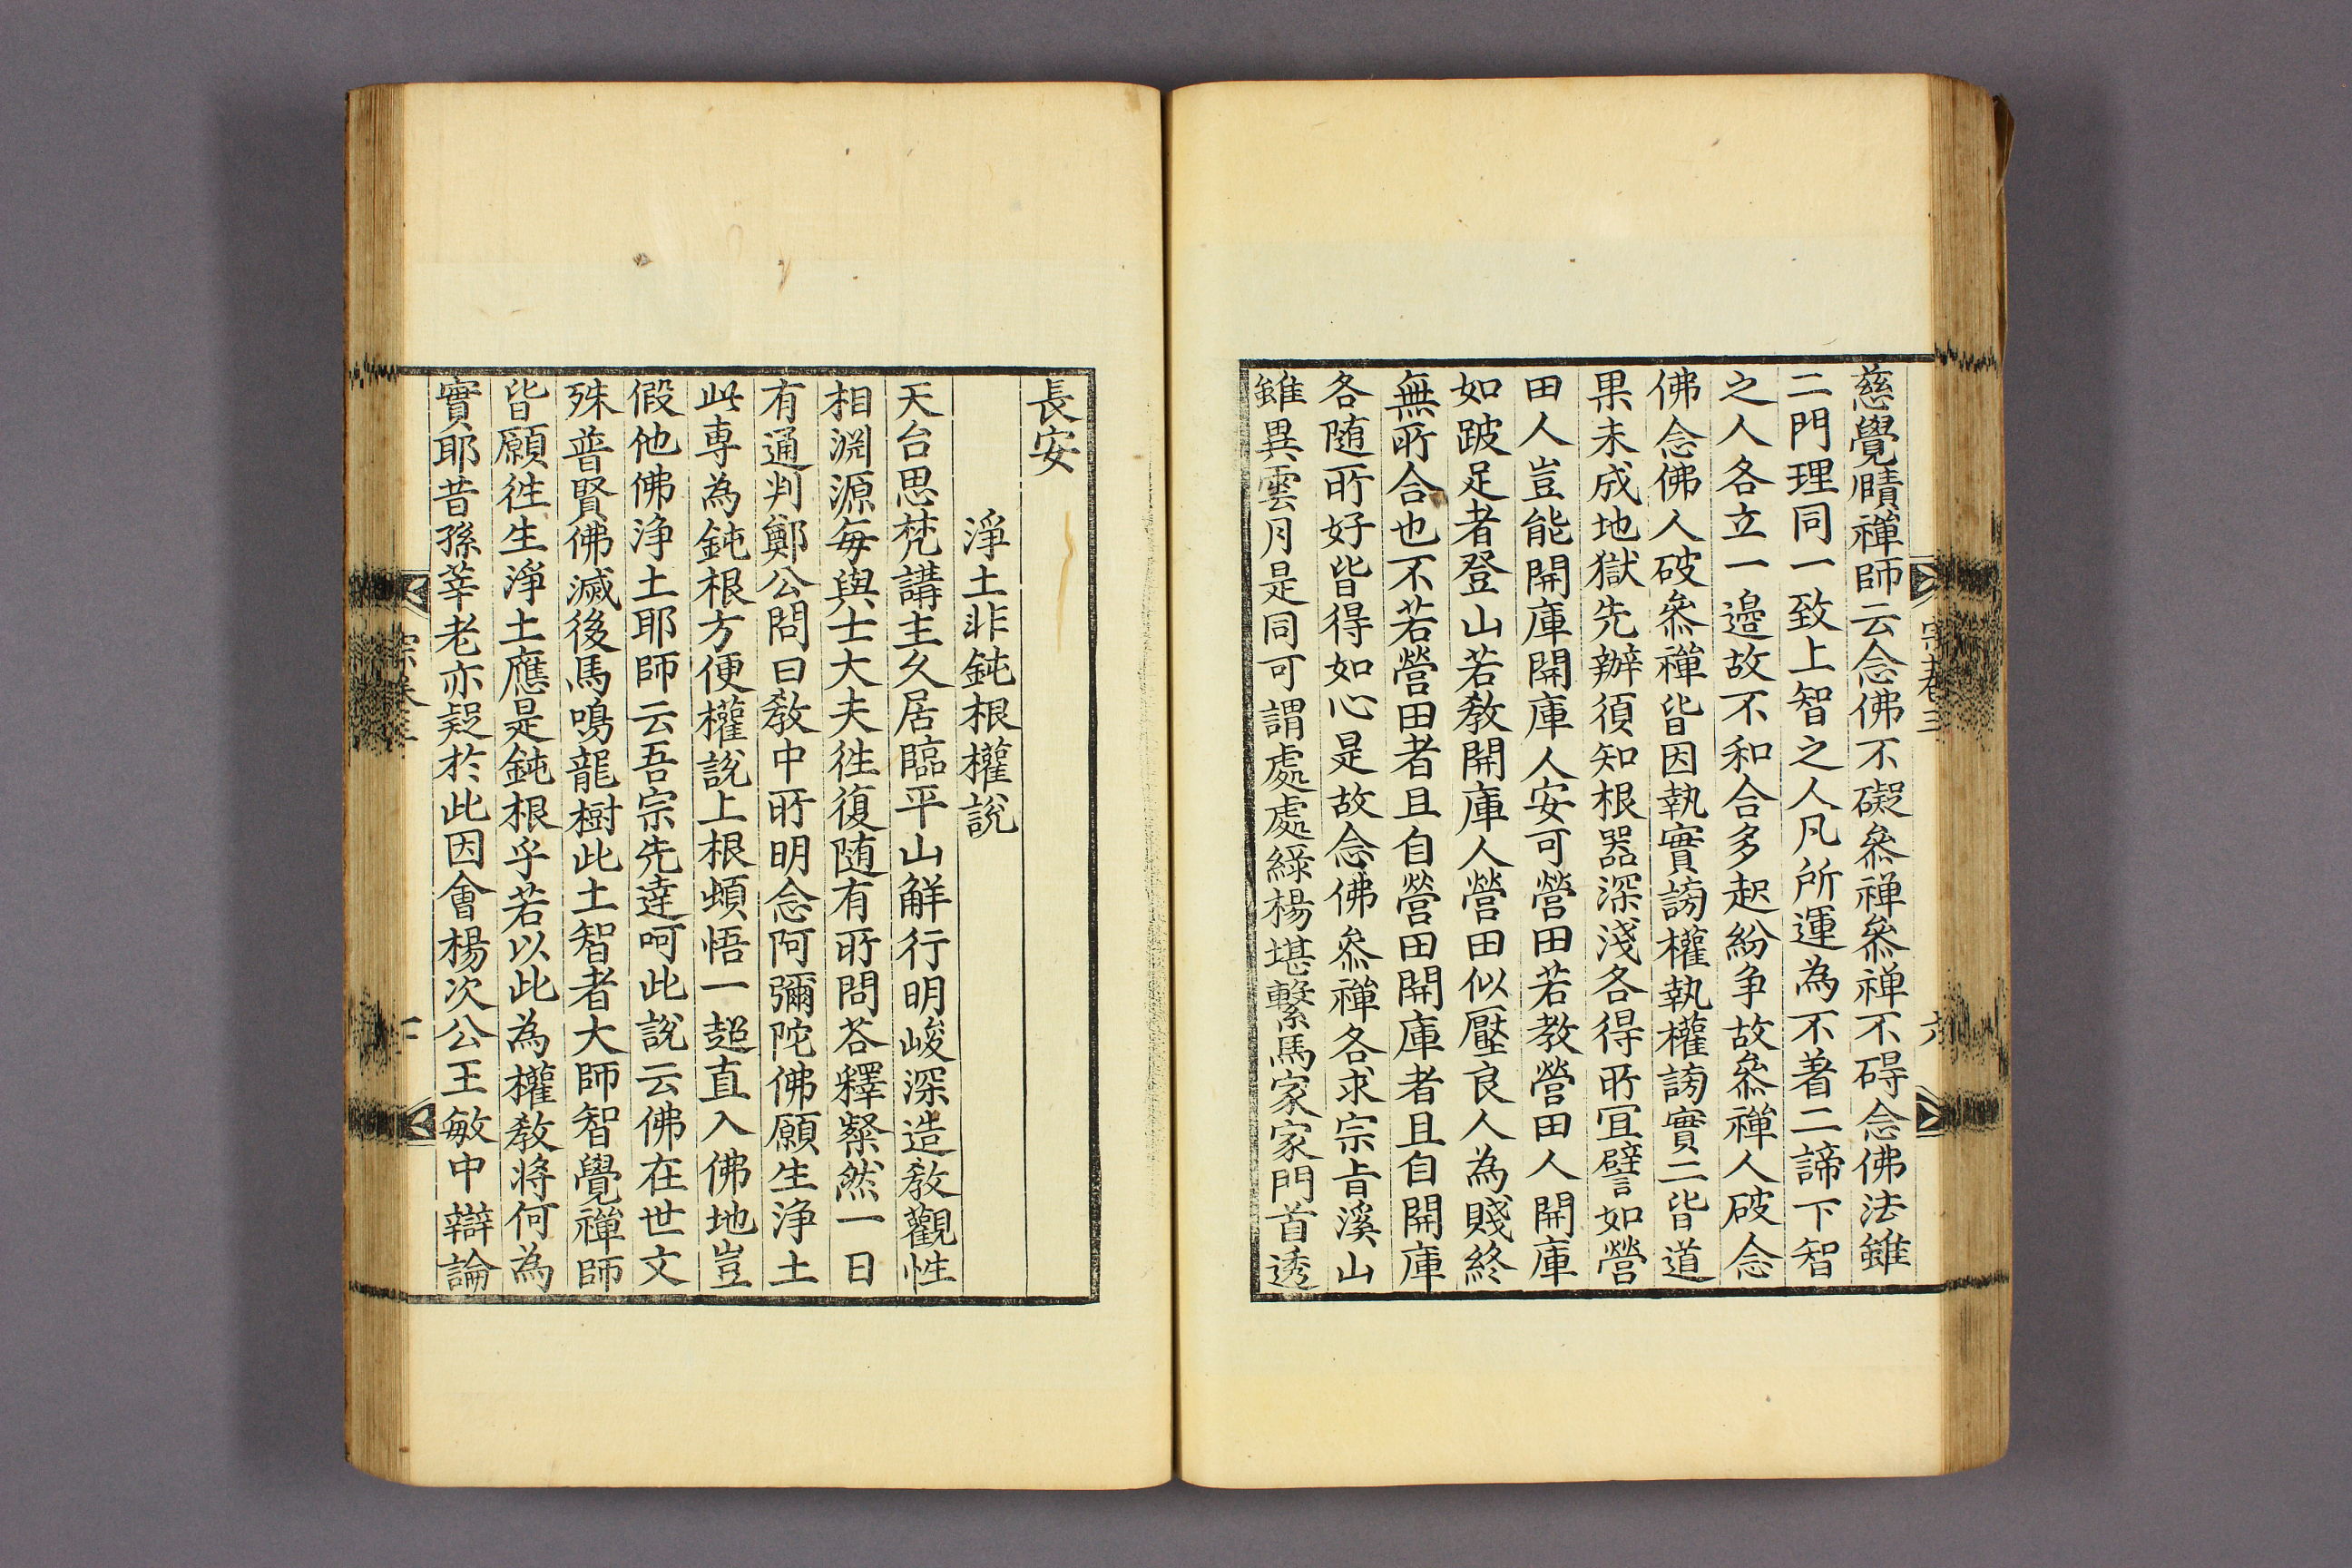 慈覺賾禪師云念佛不礙叅禅叅禅不碍念佛法雖
二門理同一致上智之人凡所運為不著二諦下智
之人各立一邉故不和合多起紛争故叅禪人破念
佛念佛人破叅禪皆因執實謗權執權謗實二皆道
果未成地獄先辦須知根器深淺各得所宜譬如營
田人豈能開庫開庫人安可營田若教營田人開庫
如跛足者登山若敎開庫人營田似壓良人為賤終
無所合也不若營田者且自營田開庫者且自開庫
各随所好皆得如心是故念佛叅禪各求宗旨溪山
雖異雲月是同可謂處處緑楊堪繫馬家家門首透
宗卷三
六
長安
淨土非鈍根權說
天台思梵講主久居臨平山解行明峻深造敎觀性
相淵源每與士大夫徃復随有所問荅釋粲然一日
有通判鄭公問曰敎中所明念阿彌陀佛願生浄土
此専為鈍根方便權說上根頓悟一超直入佛地豈
假他佛浄土耶師云吾宗先達呵此說云佛在世文
殊普賢佛滅後馬鳴龍樹此土智者大師智覺禪師
皆願徃生淨土應是鈍根乎若以此為權敎将何為
實耶昔孫莘老亦疑於此因會楊次公王敏中辯論
宗卷三